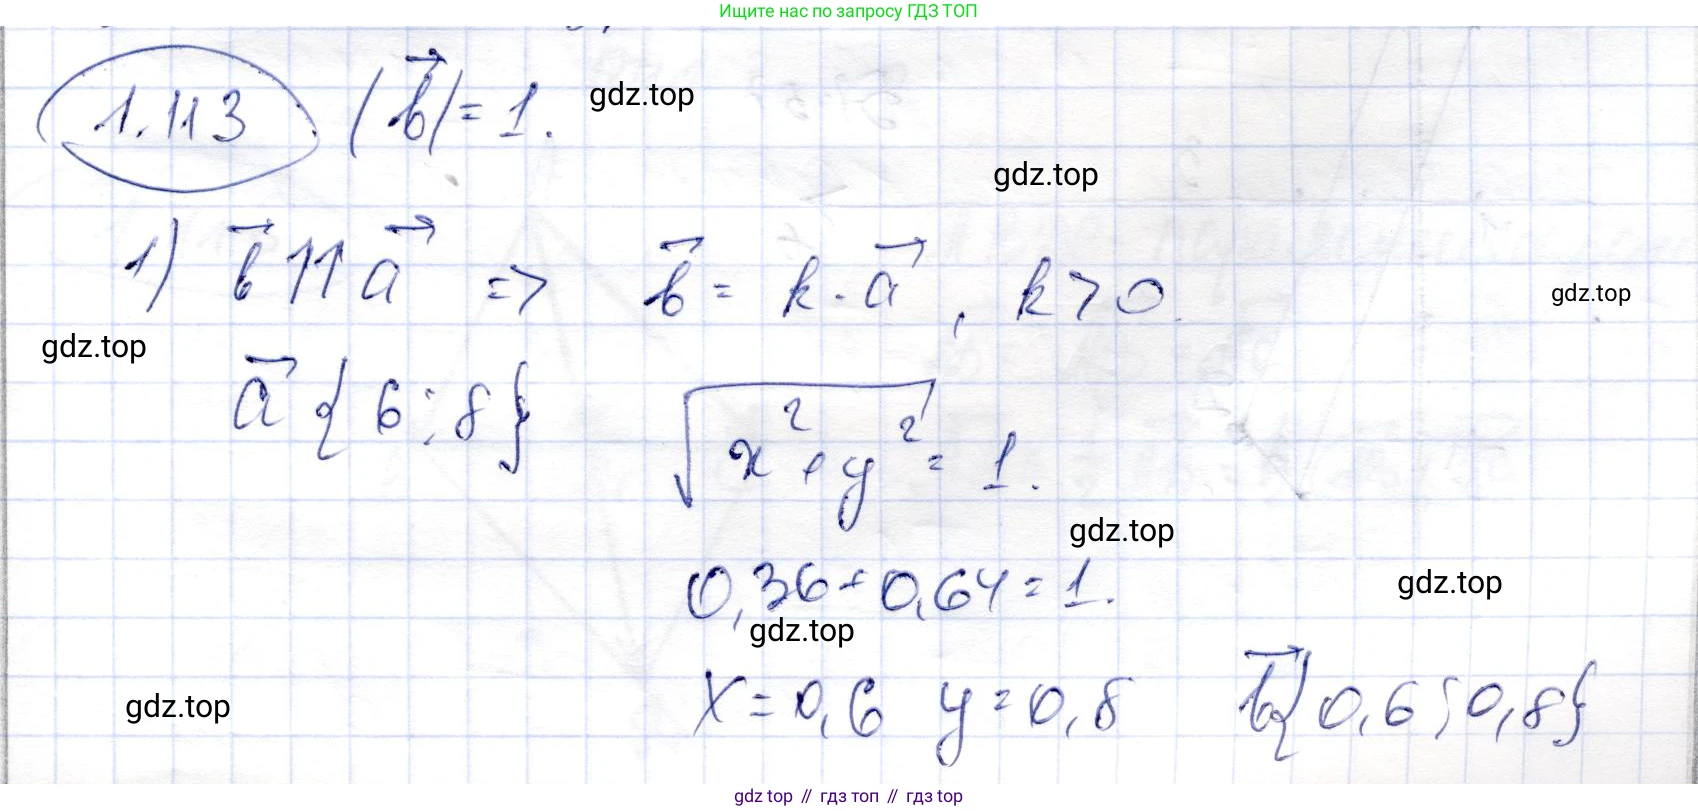 Ищите нас по запросу ГДЗ ТОП
1.113 |b⃗| = 1.
gdz.top
gdz.top
1) b⃗ ↑↑ a⃗ => b⃗ = k · a⃗, k > 0.
gdz.top
gdz.top
a⃗ {6; 8} √(x² + y²) = 1.
gdz.top
0,36 + 0,64 = 1.
gdz.top
gdz.top
x = 0,6 y = 0,8 b⃗ {0,6; 0,8}
gdz.top
gdz top // гдз топ // гдз top